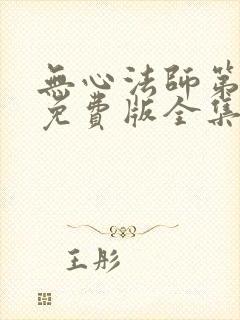 無心法師第
免費版全集
王彤